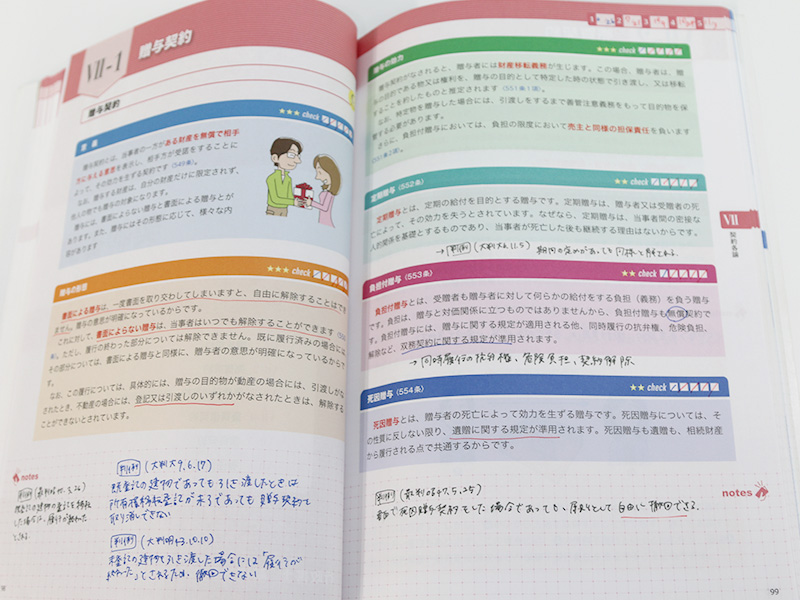 VII-1 贈与契約
贈与契約
定義
★★★ check
贈与契約とは、当事者の一方がある財産を無償で相手
方に与える意思を表示し、相手方が受諾をすることに
よって、その効力を生ずる契約です(549条)。
なお、贈与する財産は、自分の財産だけに限定されず、
他人の物でも贈与の対象になります。
贈与には、書面によらない贈与と書面による贈与とが
あります。また、贈与にはその形態に応じて、様々な内
容があります
贈与の形態
★★★ check
書面による贈与は、一度書面を取り交わしてしまいますと、自由に解除することはで
きません。贈与の意思が明確になっているからです。
これに対して、書面によらない贈与は、当事者はいつでも解除することができます
ただし、履行の終わった部分については解除できません。既に履行済みの場合には、
その部分については、書面による贈与と同様に、贈与者の意思が明確になっているからで
す。
なお、この履行については、具体的には、贈与の目的物が動産の場合には、引渡しがな
されたとき、不動産の場合には、登記又は引渡しのいずれかがなされたときは、解除する
ことができないとされています。
notes
判例
判例(大判大9.6.17)
既登記の建物であっても引き渡したときは
所有権移転登記が未了であっても贈与契約で
取り消しできない
判例(大判明43.10.10)
未登記の建物を引き渡した場合には「履行が
終わった」とされるため、撤回できない
1 2 3 4 5
贈与の効力
★★★ check
贈与契約がなされると、贈与者には財産移転義務が生じます。この場合、贈与者は、贈
与の目的である物又は権利を、贈与の目的として特定した時の状態で引き渡し、又は移転
することを約したものと推定されます(551条1項)。
なお、特定物を贈与した場合には、引渡しをするまで善管注意義務をもって目的物を保
管する必要があります。
さらに、負担付贈与においては、負担の限度において売主と同様の担保責任を負います
(551条2項)。
定期贈与(552条)
★ check
定期贈与とは、定期の給付を目的とする贈与です。定期贈与は、贈与者又は受贈者の死
亡によって、その効力を失うとされています。なぜなら、定期贈与は、当事者間の密接な
人的関係を基礎とするものであり、当事者が死亡した後も継続する理由はないからです。
→判例(大判大6.11.5) 期間の定めがあっても同様と解される。
負担付贈与(553条)
★★ check
負担付贈与とは、受贈者も贈与者に対して何らかの給付をする負担(義務)を負う贈与
です。負担は、贈与と対価関係に立つものではありませんから、負担付贈与も無償契約で
す。負担付贈与には、贈与に関する規定が適用される他、同時履行の抗弁権、危険負担、
解除など、双務契約に関する規定が準用されます。
→同時履行の抗弁権、危険負担、契約解除
死因贈与(554条)
★★ check
死因贈与とは、贈与者の死亡によって効力を生ずる贈与です。死因贈与については、そ
の性質に反しない限り、遺贈に関する規定が準用されます。死因贈与も遺贈も、相続財産
から履行される点で共通するからです。
判例(最判昭47.5.25)
書面で死因贈与契約をした場合であっても、原則として自由に撤回できる。
notes
VII
契約各論
99